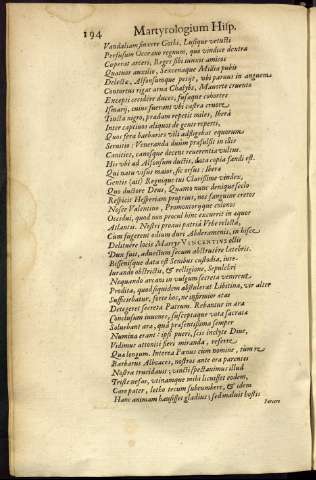 194 Martyrologium Hisp.
Vandaliam sincere Gothi, Lusique vetusta
Persusum Occeano regnum, quo vindice dextra
Coperat arceri, Reges sibi iunxit amicos
Quatuor auxilio, Sexcenaque Millia pubis
Delectæ, Alfonsumque petijt, vbi paruus in anguem
Contortus rigat arua Chalybs, Mauorte cruento
Excepit crebere duces, fusaque cohortes
Ismarij, cuius fuerant vbi castra cruore
Tincta nigro, prædam repetit miles, Iberâ
Inter captiuos aliquos de gente reperti,
Quos fera barbaries vili adstigebat equorum
Seruitio: Veneranda duûm præsulsit in illis
Canities, cunisque decens reuerentia vultus.
His vbi ad Alfonsum ductis, data copia fandi est.
Qui natu visus maior, sic orsus: Ibera
Gentis (ait) Regnique tui Clarissime vindex,
Quo ductore Deus, Quamo nunc denique Solo
Respicit Hesperiam proprius, nos sanguine cretos
Nosce Valentino, Promontorijque colonos
Occidui, quod non procul hinc excurrit in aquor
Atlantis. Nostri proaui patria Vrbe relicta,
Cum fugerent odium duri Abderamenis, in hisce
Delituere locis Martyr VINCENTIVS ollis
Dux fuit, aduectum secum abstrusere latebris.
Bissenisque data est Senibus custodia, iure-
iurando abstrictis, & religione, sepulcri
Nequando arcani in vulgum secreta venirent
Prodita, quod siquidem abstulerat Libitina, vir alter
Sufficiebatur, forte hos, ne iniurius atas
Detegeret secreta Patrum. Rebantur in ara
Conclusum iuuenes, susceptaque vota sacrata
Soluebant ara, quâ præsentissima semper
Numina erant: ipsi pueri, scis inclyte Diue,
Vidimus attoniti fieri miranda, referre
Qua longum. Interea Pænus cum nomine, tum re
Barbarus Alboaces, nostros ante ora parentes
Nostra trucidauit; vincti spectauimus illud
Triste nefas, vtinamque mihi licuisset eodem,
Care pater, letho tecum succumbere, & idem
Hanc animam hausisset gladius; sed maluit hostis